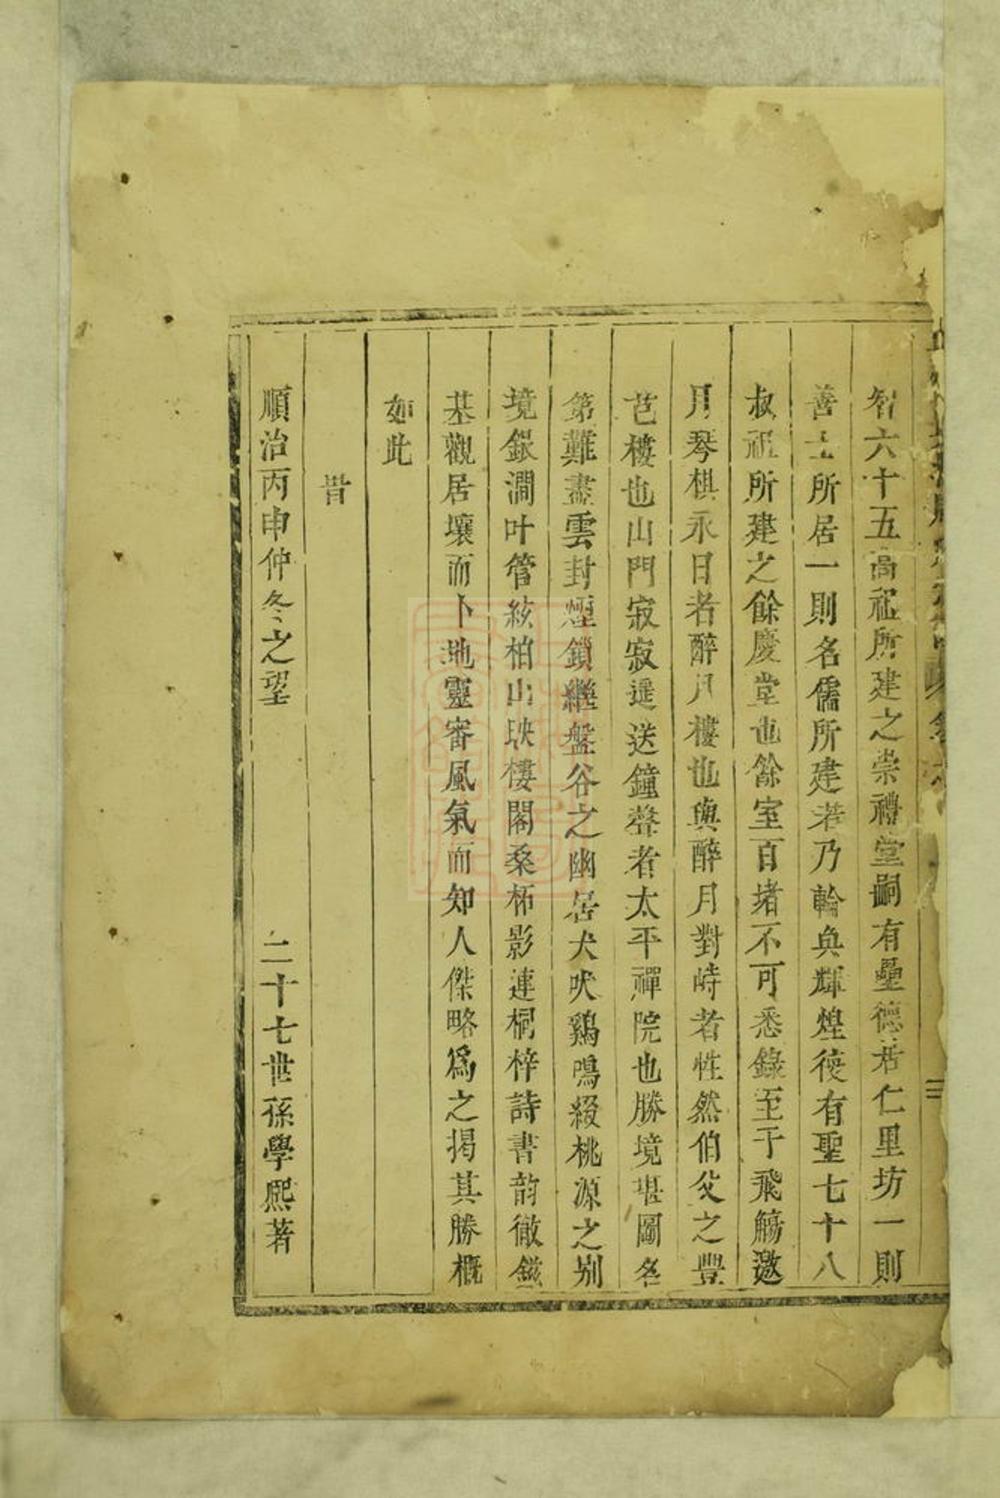 智六十五高祖所建之崇禮堂嗣有壘德居仁里坊一則
善士所居一則名儒所建若乃輪奐輝煌復有聖七十八
叔祖所建之餘慶堂也餘室百堵不可悉錄至于飛觴邀
月琴棋永日者醉月樓也與醉月對峙者性然伯父之豐
芑樓也山門寂寂遥送鐘聲者太平禪院也勝境堪圖名
第難盡雲封煙鎖繼盤谷之幽居犬吠鷄鳴綴桃源之别
境銀澗叶管絃柏山映樓閣桑柘影連桐梓詩書韵徹鎡
基觀居壤而卜地靈審風氣而知人傑略爲之揭其勝概
如此
旹
順治丙申仲冬之望 二十七世孫學熙著